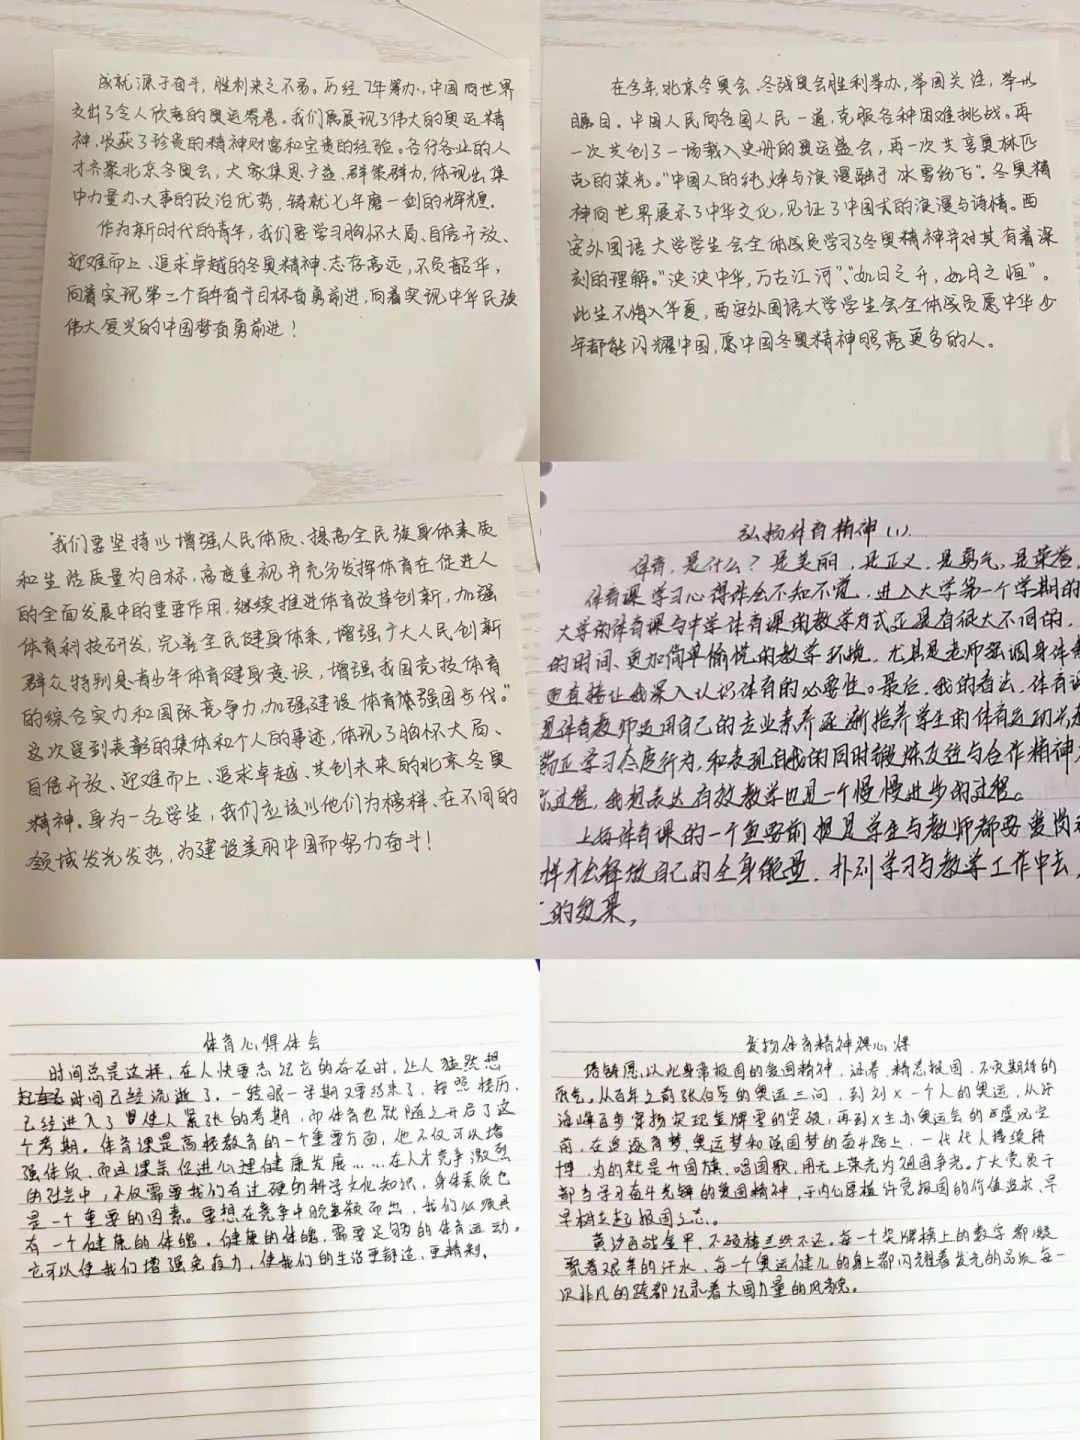 成就源于奋斗,胜利来之不易。历经7年筹办,中国向世界
交出了令人欣喜的奥运答卷。我们展展现了伟大的奥运精
神,收获了珍贵的精神财富和宝贵的经验。各行各业的人
才齐聚北京冬奥会,大家集思广益,群策群力,体现出集
中力量办大事的政治优势,铸就七年磨一剑的辉煌。
作为新时代的青年,我们要学习胸怀大局、自信开放、
迎难而上、追求卓越的冬奥精神、志存高远,不负韶华,
向着实现第二个百年奋斗目标奋勇前进,向着实现中华民族
伟大复兴的中国梦奋勇前进!
在今年,北京冬奥会、冬残奥会胜利举办,举国关注,举世
瞩目。中国人民同各国人民一道,克服各种困难挑战。再
一次共创了一场载入史册的奥运盛会,再一次共享奥林匹
克的荣光。“中国人的纯粹与浪漫融于冰雪纷飞”。冬奥精
神向世界展示了中华文化,见证了中国式的浪漫与诗情。西
安外国语大学学生会全体成员学习了冬奥精神并对其有着深
刻的理解。“泱泱中华,万古江河”、“如日之升,如月之恒”。
此生不悔入华夏,西安外国语大学学生会全体成员愿中华少
年都能闪耀中国,愿中国冬奥精神照亮更多的人。
“我们要坚持以增强人民体质、提高全民族身体素质
和生活质量为目标,高度重视并充分发挥体育在促进人
的全面发展中的重要作用,继续推进体育改革创新,加强
体育科技研发,完善全民健身体系,增强广大人民创新
群众特别是青少年体育健身意识,增强我国竞技体育
的综合实力和国际竞争力,加强建设体育强国步伐。”
这次受到表彰的集体和个人的事迹,体现了胸怀大局、
自信开放、迎难而上、追求卓越、共创未来的北京冬奥
精神。身为一名学生,我们应该以他们为榜样、在不同的
领域发光发热,为建设美丽中国而努力奋斗!
弘扬体育精神(1)
体育,是什么?是美丽,是正义,是勇气,是荣誉,
体育课学习心得体会不知不觉,进入大学第一个学期的
大学的体育课与中学体育课的教学方式还是有很大不同的,
的时间、更加简单愉悦的教学环境,尤其是老师强调身体
更直接让我深入认识体育的必要性。最后,我的看法,体育
是体育教师运用自己的专业素养逐渐培养学生的体育运动兴
端正学习态度行为,和表现自我的同时锻炼友谊与合作精神
过程,我想表达有效教学也是一个慢慢进步的过程。
上每体育课的一个重要前提是学生与教师都要爱岗
样才会释放自己的全身能量,扑到学习与教学工作中去,
的效果,
体育心得体会
时间总是这样,在人快要忘记它的存在时,让人猛然想
起时间已经流逝了,一转眼一学期又要结束了,按照校历,
已经进入了使人紧张的考期,而体育也就随之开启了这
个考期。体育课是高校教育的一个重要方面,他不仅可以增
强体质,而这课亲促进心理健康发展……在人才竞争激烈
的社会中,不仅需要我们有过硬的科学文化知识,身体素质也
是一个重要的因素。要想在竞争中脱颖而出,我们必须具
有一个健康的体魄,健康的体魄,需要足够的体育运动。
它可以使我们增强免疫力,使我们的生活更舒适、更精彩。
发扬体育精神 心得
培铸愿以此身常报国的爱国精神,还看,精忠报国,不负期待的
底气。从百年之前张伯苓的奥运三问,到刘x一个人的奥运,从许
海峰百步穿杨实现金牌零的突破,再到x主办奥运会的盛况空
前,在追逐育梦、奥运梦和强国梦的奋斗路上,一代代人接续拼
博,为的就是升国旗、唱国歌,用无上荣光为祖国争光。广大党员干
部当学习奋斗先锋的爱国精神,于内心厚植许党报国的价值追求、早
早树立起报国之志。
黄沙百战金甲,不破楼兰终不还。每一个奖牌榜上的数字都凝
聚着艰辛的汗水,每一个奥运健儿的身上都闪耀着发光的品质,每一
次非凡的跨都记录着大国力量的风貌。